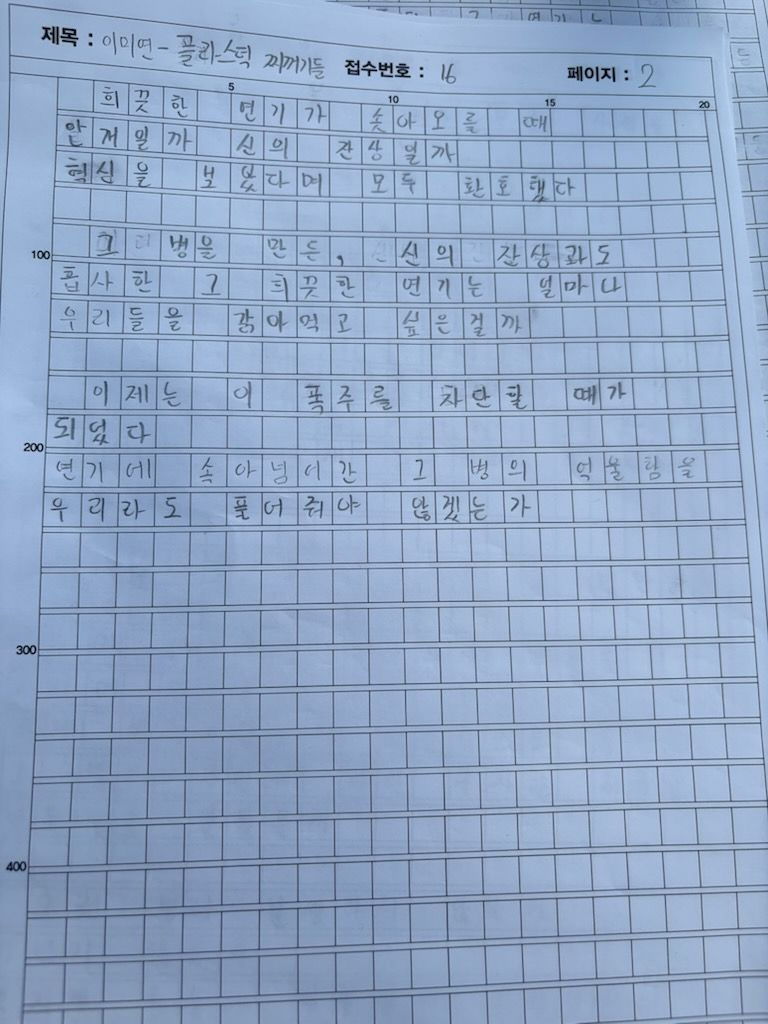 제목 : 이미연 - 플라스틱 찌꺼기들 접수번호 : 16 페이지 : 2
5 10 15 20
희끗한 연기가 솟아오를 때
안개일까 신의 잔상일까
혁신을 보았다며 모두 환호했다
100
그 병을 만든, 신의 잔상과도
흡사한 그 희끗한 연기는 얼마나
우리들을 갉아먹고 싶은걸까
이제는 이 폭주를 차단할 때가
되었다
200
연기에 속아넘어간 그 병의 억울함을
우리라도 풀어줘야 않겠는가
300
400